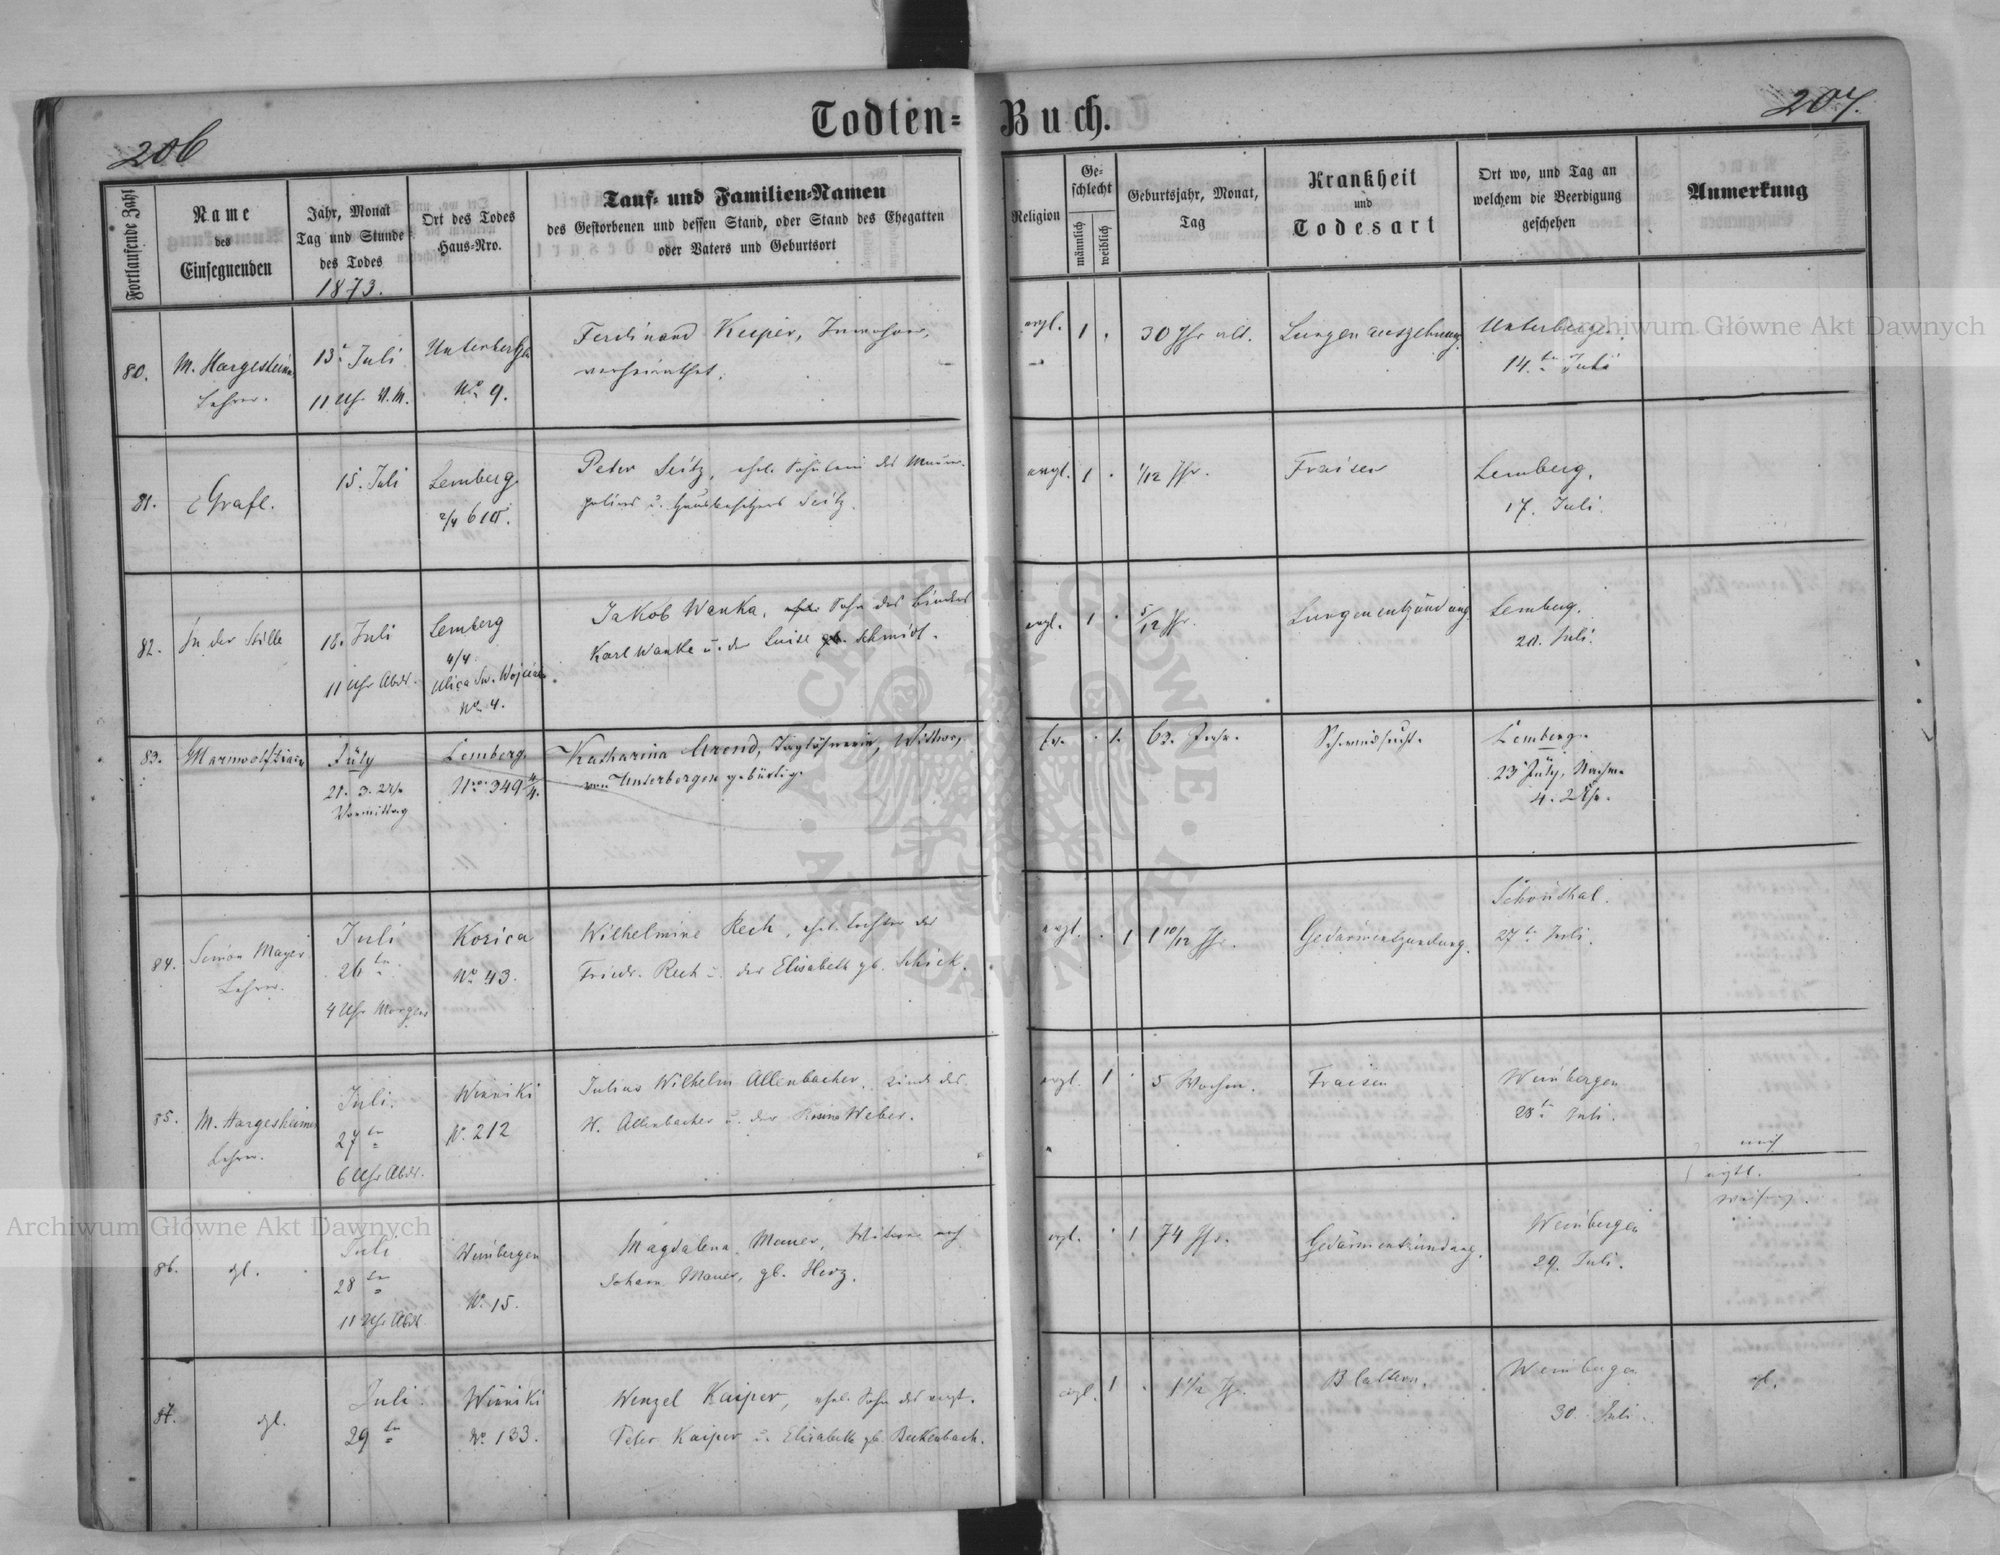 Todten-Buch.
206
207.
Fortlaufende Zahl
Name
des
Einsegnenden
Jahr, Monat
Tag und Stunde
des Todes
1873.
Ort des Todes
Haus-Nro.
Tauf- und Familien-Namen
des Gestorbenen und dessen Stand, oder Stand des Ehegatten
oder Vaters und Geburtsort
Religion
Ge-
schlecht
männlich
weiblich
Geburtsjahr, Monat,
Tag
Krankheit
und
Todesart
Ort wo, und Tag an
welchem die Beerdigung
geschehen
Anmerkung
80.
M. Hargesheimer
Lehrer.
13. Juli
11 Uhr V.M.
Unterbergen
No 9.
Ferdinand Kuper, Inwohner,
verheirathet.
evgl.
1
30 Jhr alt.
Lungenauszehrung.
Unterbergen
14. Juli
81.
Grafl.
15. Juli
Lemberg.
2/4
Peter Seitz, ehel. des Maurer-
poliers u. Hausbesitzers Seitz.
evgl.
1
1/12 Jhr.
Fraisen
Lemberg.
17. Juli.
82.
In der Stille
18. Juli
11 Uhr Abds.
Lemberg
4/4
Ulica Sw.
No 4.
Jakob Wanka, Sohn des Binders
Karl Wanka u. der Luise gb. Schmidt.
evgl.
1
5/12 Jhr.
Lungenentzündung
Lemberg.
20. Juli.
83.
July
21. 3. Uhr
Vormittag
Lemberg.
No 349 4/4.
Katharina Arend, Taglöhnerin, Wittwe,
von Unterbergen gebürtig.
1.
63. Jahr.
Schwindsucht.
Lemberg.
23 July, Nachm.
4. Uhr.
84.
Simon Mayer
Lehrer.
Juli
26 tn
4 Uhr Morgens
Kozica
No 43.
Wilhelmine Rech, ehel. Tochter des
Friedr. Rech u. der Elisabeth gb. Schick.
evgl.
1
1 10/12 Jhr.
Gedärmentzündung.
Schönthal.
27 tn Juli.
85.
M. Hargesheimer
Lehrer.
Juli.
27 tn
6 Uhr Abds.
Winniki
N. 212
Julius Wilhelm Allenbacher, Kind des
W. Allenbacher u. der Rosina Weber.
evgl.
1
5 Wochen.
Fraisen
Weinbergen
28 t. Juli.
86.
dgl.
Juli
28 tn
11 Uhr Abds.
Weinbergen
N. 15.
Magdalena Mauer, Witwe nach
Johann Mauer, gb. Herz.
evgl.
1
74 Jhr.
Gedärmentzündung.
Weinbergen
29. Juli.
87.
dgl.
Juli
29 tn
Winniki
No 133.
Wenzel Kaiper, ehel. Sohn des evgl.
Peter Kaiper u. Elisabeth gb. Becklenbach.
evgl.
1
1 1/2 Jhr.
Blattern.
Weinbergen
30. Juli.
dgl.
Archiwum Główne Akt Dawnych
Archiwum Główne Akt Dawnych
ARCHIWUM GŁÓWNE AKT DAWNYCH